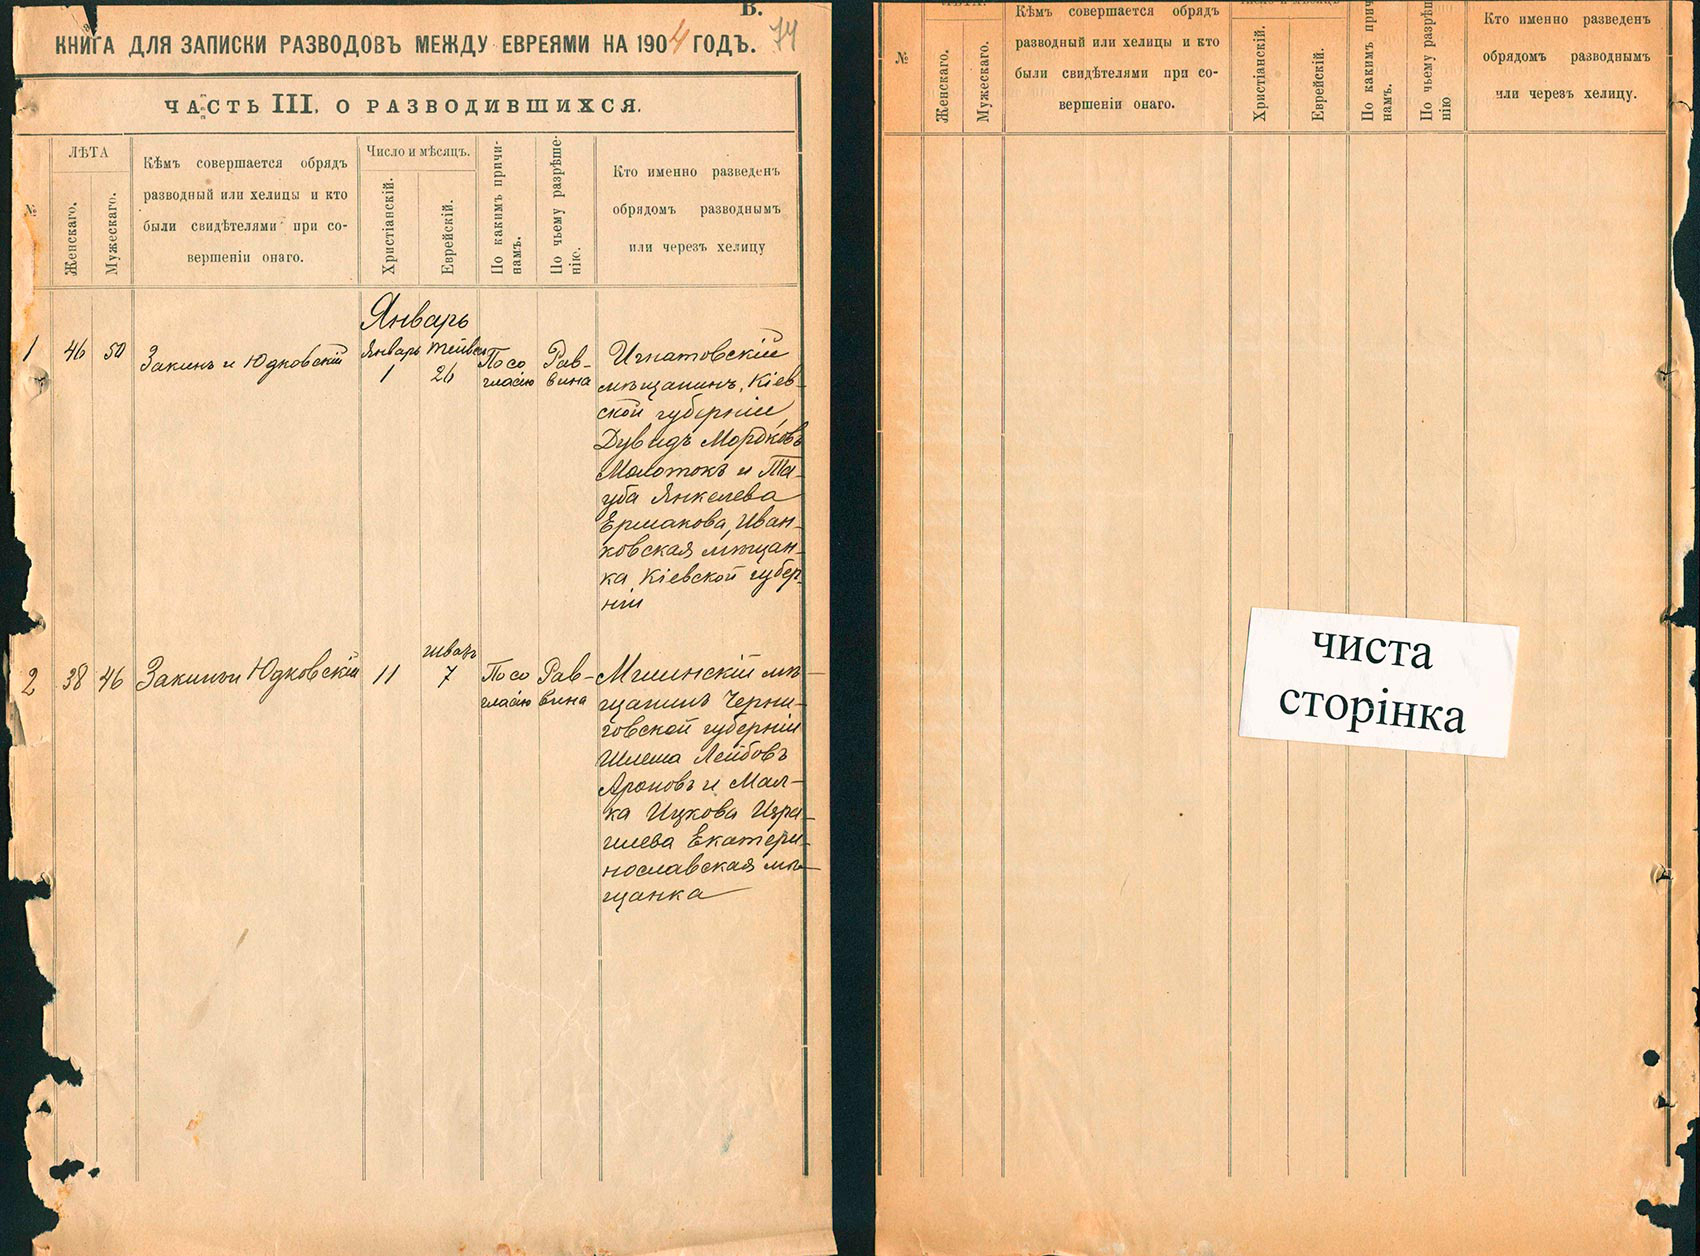 В.
КНИГА ДЛЯ ЗАПИСКИ РАЗВОДОВЪ МЕЖДУ ЕВРЕЯМИ НА 1904 ГОДЪ. 74
ЧАСТЬ III, О РАЗВОДИВШИХСЯ.
№
ЛѢТА
Женскаго.
Мужескаго.
Кѣмъ совершается обрядъ
разводный или хелицы и кто
были свидѣтелями при со-
вершеніи онаго.
Число и мѣсяцъ.
Христіанскій.
Еврейскій.
По какимъ причи-
намъ.
По чьему разрѣше-
нію.
Кто именно разведенъ
обрядомъ разводнымъ
или через​ъ хелицу
Январь
1 46 50 Закинъ и Юдковскій
Январь
1
26
По со
гласію
Рав-
вина
Игнатовскій
мѣщанинъ, Кіев-
ской губерніи
Дувидъ Мордковъ
Молотокъ и Та-
уба Янкелева
Ермакова, Иван-
ковская мѣщан-
ка, Кіевской губер-
ніи
2 38 46 Закинъ и Юдковскій 11
шватъ
7
По со
гласію
Рав-
вина
Мглинскій мѣ-
щанинъ Черни-
говской губерніи
Шлема Лейбовъ
Ароновъ и Мал-
ка Ицкова Изра-
илева Екатери-
нославская мѣ-
щанка
№
ЛѢТА.
Женскаго.
Мужескаго.
Кѣмъ совершается обрядъ
разводный или хелицы и кто
были свидѣтелями при со-
вершеніи онаго.
Число и мѣсяцъ
Христіанскій.
Еврейскій.
По какимъ прич
намъ.
По чьему разрѣш
нію
Кто именно разведенъ
обрядомъ разводнымъ
или черезъ хелицу.
чиста
сторінка